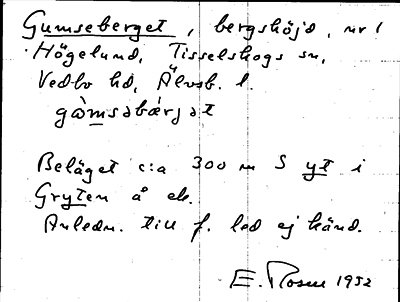 Gumseberget, bergshöjd, nr 1
Högelund, Tisselskogs sn,
Vedbo hd, Älvsb. l.
gòmsabærjət
Beläget c:a 300 m S yt i
Gryten å ek.
Anledn. till f. led ej känd.
E. Rosell 1952